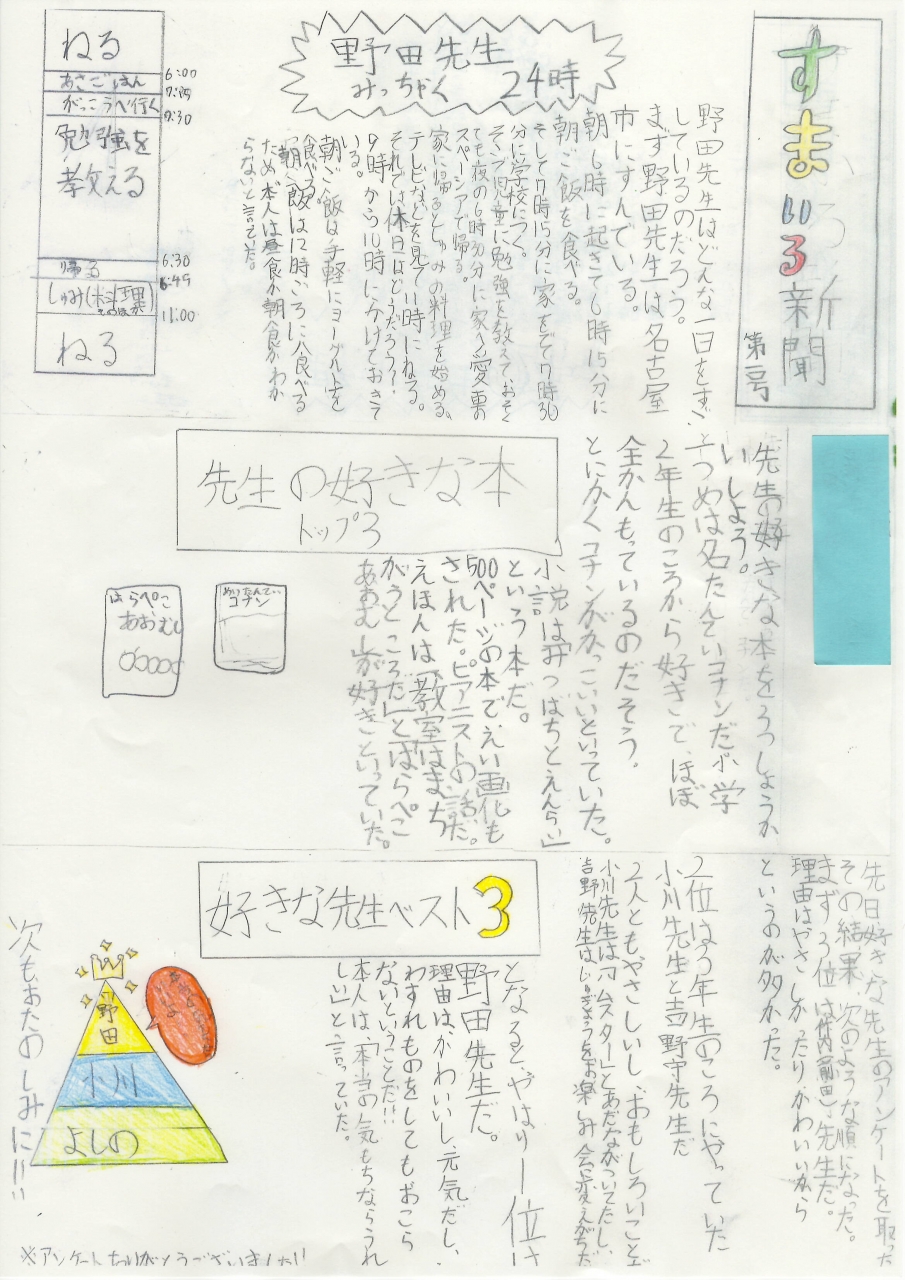 すまいる新聞
第一号
野田先生
みっちゃく 24時
野田先生はどんな一日をすご
しているのだろう。
まず野田先生は名古屋
市にすんでいる。
朝、6時に起きて6時15分に
朝ご飯を食べる。
そして7時15分に家をでて7時30
分に学校につく。
そして児童に勉強を教えておそく
ても夜の6時30分に家へ愛車の
スペーシアで帰る。
家に帰るとしゅみの料理を始める。
テレビなどを見て11時にねる。
それでは休日はどうだろう?
9時から10時にかけておきて
いる。
朝ご飯は手軽にヨーグルトを
食べる。
「朝ご飯は12時ごろに食べる
ため、本人は昼食か朝食かわか
らない」と言っていた。
ねる
6:00
あさごはん
7:15
がっこうへ行く
7:30
勉強を
教える
6:30
帰る
6:45
しゅみ(料理)
そのほか
11:00
ねる
先生の好きな本
トップ3
先生の好きな本をしょうか
いしよう。
一つめは名たんていコナンだ。小学
2年生のころから好きで、ほぼ
全かんもっているのだそう。
とにかくコナンがかっこいいといっていた。
小説は「みつばちとえんらい」
という本だ。
500ページの本で、えい画化も
された。ピアニストの話だ。
えほんは「教室はまち
がうところだ」と「はらぺこ
あおむし」が好きといっていた。
めいたんてい
コナン
はらぺこ
あおむし
好きな先生ベスト3
先日好きな先生のアンケートを取った
その結果、次のような順になった。
まず3位は竹内(前田)先生だ。
理由はやさしかったりかわいいから
というのが多かった。
2位は3年生のころにやっていた
小川先生と吉野守先生だ
2人ともやさしいし、おもしろいことで
小川先生は「ハムスター」とあだながついてたし、
吉野先生はじゅぎょうをお楽しみ会に変えがちだ
となると、やはり一位は
野田先生だ。
理由は、かわいいし、元気だし、
わすれものをしてもおこら
ないということだ!!
本人は、「本当の気もちならうれ
しい」と、言っていた。
野田
小川
よしの
次もおたのしみに!!!
※アンケートありがとうございました!!